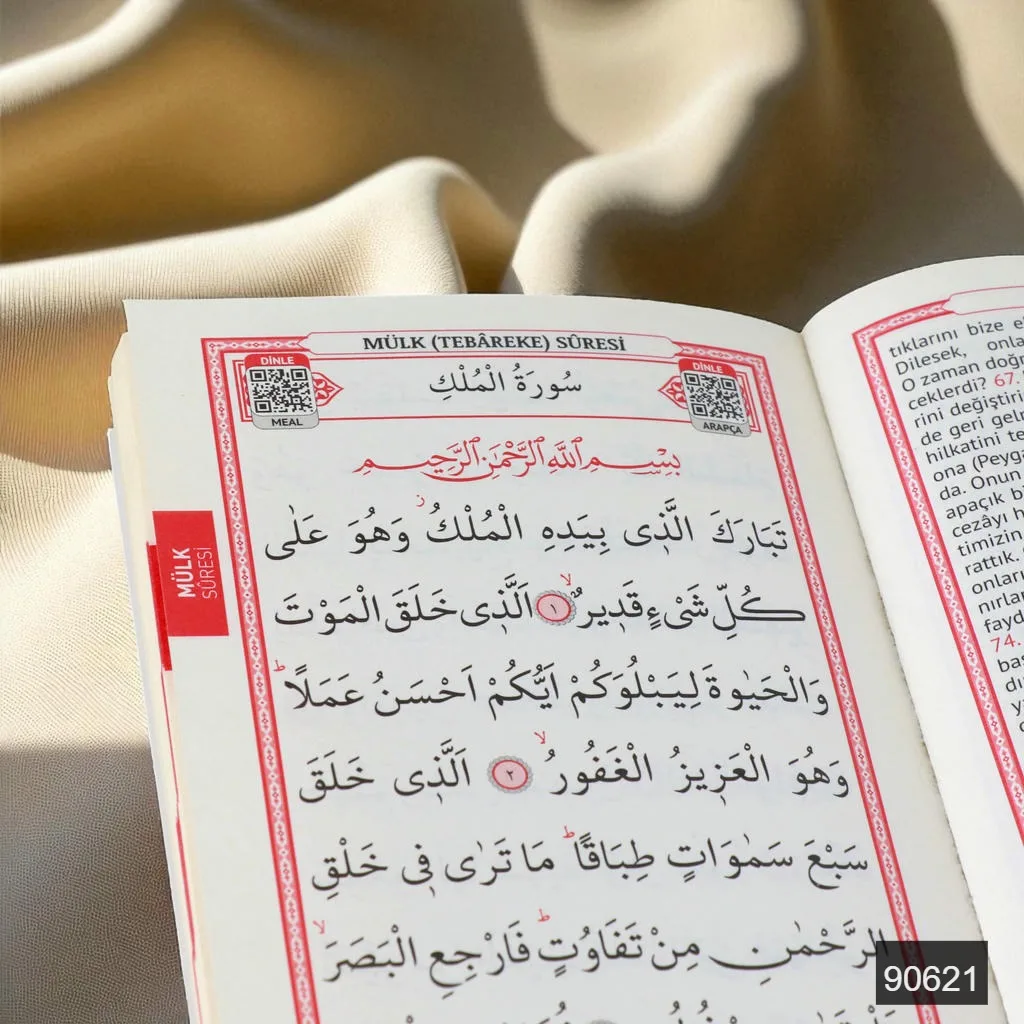 MÜLK (TEBÂREKE) SÛRESİ
DİNLE
MEAL
سُورَةُ الْمُلْكِ
DİNLE
ARAPÇA
بِسْمِ اللهِ الرَّحْمٰنِ الرَّحِيمِ
تَبَارَكَ الَّذ۪ى بِيَدِهِ الْمُلْكُ ۘ وَهُوَ عَلٰى
كُلِّ شَىْءٍ قَد۪يرٌ ۙ ﴿١﴾ اَلَّذ۪ى خَلَقَ الْمَوْتَ
وَالْحَيٰوةَ لِيَبْلُوَكُمْ اَيُّكُمْ اَحْسَنُ عَمَلًا ۜ
وَهُوَ الْعَز۪يزُ الْغَفُورُ ۙ ﴿٢﴾ اَلَّذ۪ى خَلَقَ
سَبْعَ سَمٰوَاتٍ طِبَاقًا ۜ مَا تَرٰى ف۪ى خَلْقِ
الرَّحْمٰنِ مِنْ تَفَاوُتٍ ۜ فَارْجِعِ الْبَصَرَ ۙ
MÜLK
SÛRESİ
tıklarını bize
Dilesek,
O zaman
ceklerdi? 67.
rini değiştiri
de geri
hilkatini
ona
da. Onun
apaçık
cezâyı
timizin
rattık.
74.
90621